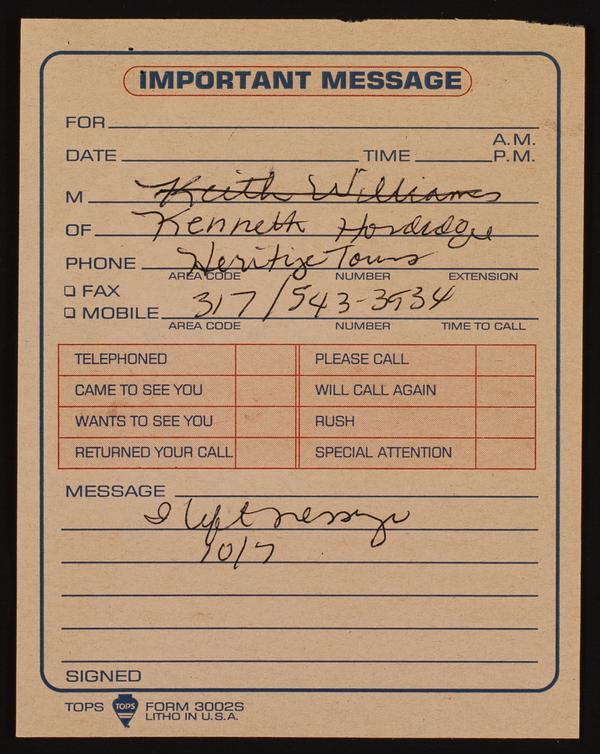 IMPORTANT MESSAGE
FOR
A.M.
DATE TIME P.M.
M Keith Williams
OF Kenneth
PHONE Heritige Tours
AREA CODE NUMBER EXTENSION
FAX
MOBILE 317/543-3934
AREA CODE NUMBER TIME TO CALL
TELEPHONED PLEASE CALL
CAME TO SEE YOU WILL CALL AGAIN
WANTS TO SEE YOU RUSH
RETURNED YOUR CALL SPECIAL ATTENTION
MESSAGE
I left message
10/7
SIGNED
TOPS TOPS FORM 3002S
LITHO IN U.S.A.